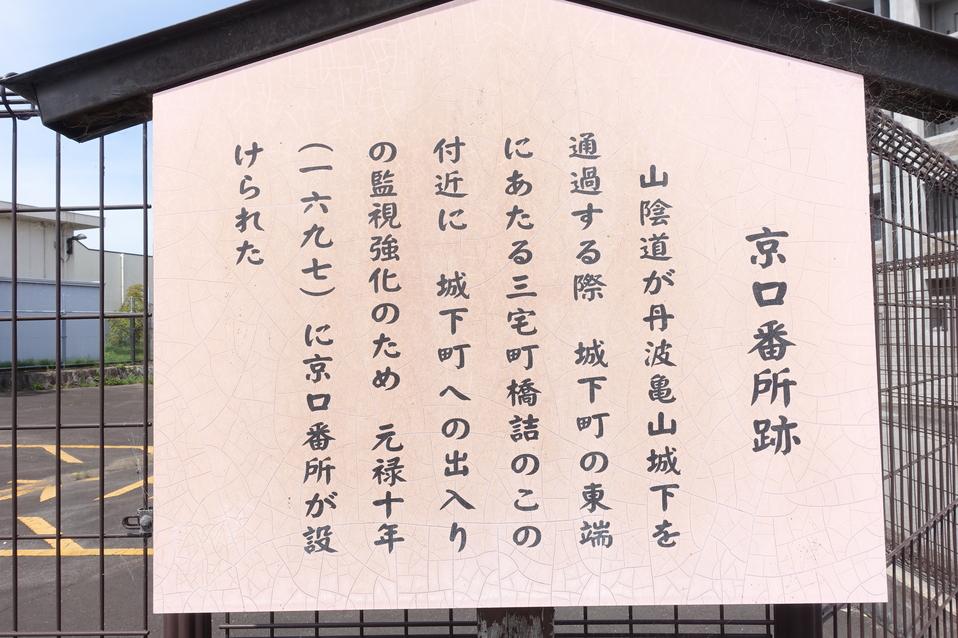 京口番所跡
山陰道が丹波亀山城下を
通過する際　城下町の東端
にあたる三宅町橋詰のこの
付近に　城下町への出入り
の監視強化のため　元禄十年
（一六九七）に京口番所が設
けられた